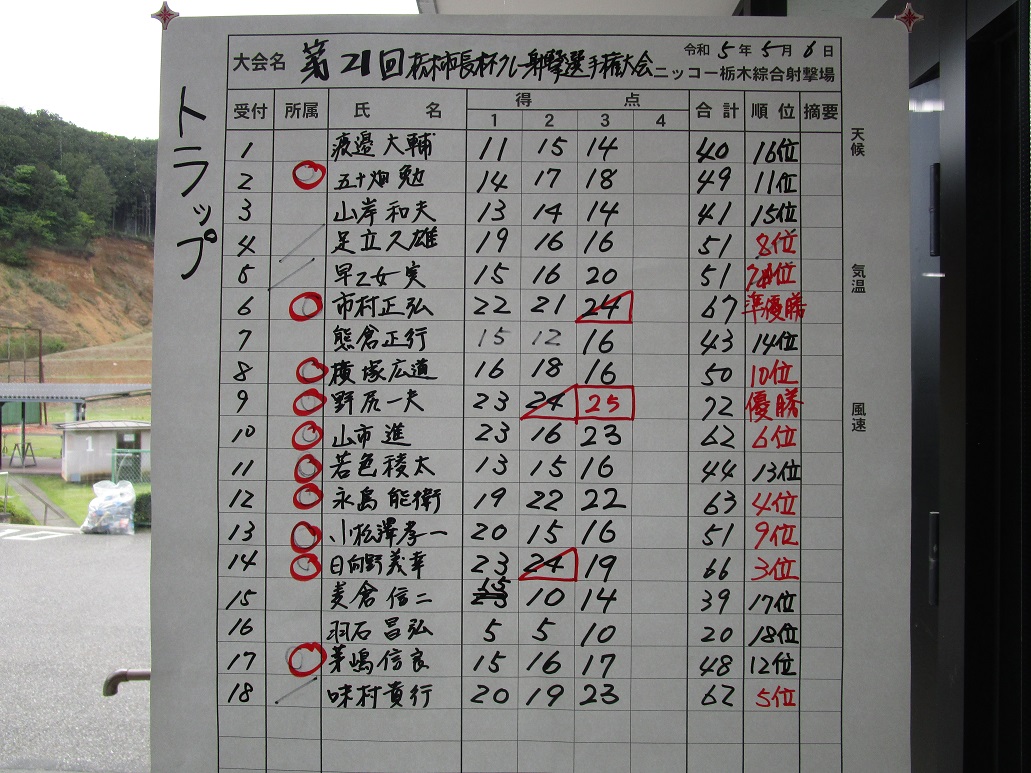 大会名 第21回 栃木市長杯クレー射撃選手権大会 ニッコー栃木綜合射撃場
令和 5 年 5 月 6 日
トラップ
受付 所属 氏 名 得 点 合計 順位 摘要
1 2 3 4
1 渡邉大輔 11 15 14 40 16位
2 五十畑勉 14 17 18 49 11位
3 山岸和夫 13 14 14 41 15位
4 足立久雄 19 16 16 51 8位
5 早乙女実 15 16 20 51 7位
6 市村正弘 22 21 24 67 準優勝
7 熊倉正行 15 12 16 43 14位
8 横塚広道 16 18 16 50 10位
9 野尻一夫 23 24 25 72 優勝
10 山市進 23 16 23 62 6位
11 若色稜太 13 15 16 44 13位
12 永島能衛 19 22 22 63 4位
13 小松澤孝一 20 15 16 51 9位
14 日向野義幸 23 24 19 66 3位
15 倉信二 15 10 14 39 17位
16 羽石昌弘 5 5 10 20 18位
17 茅嶋信良 15 16 17 48 12位
18 味村貴行 20 19 23 62 5位
天候
気温
風速
1